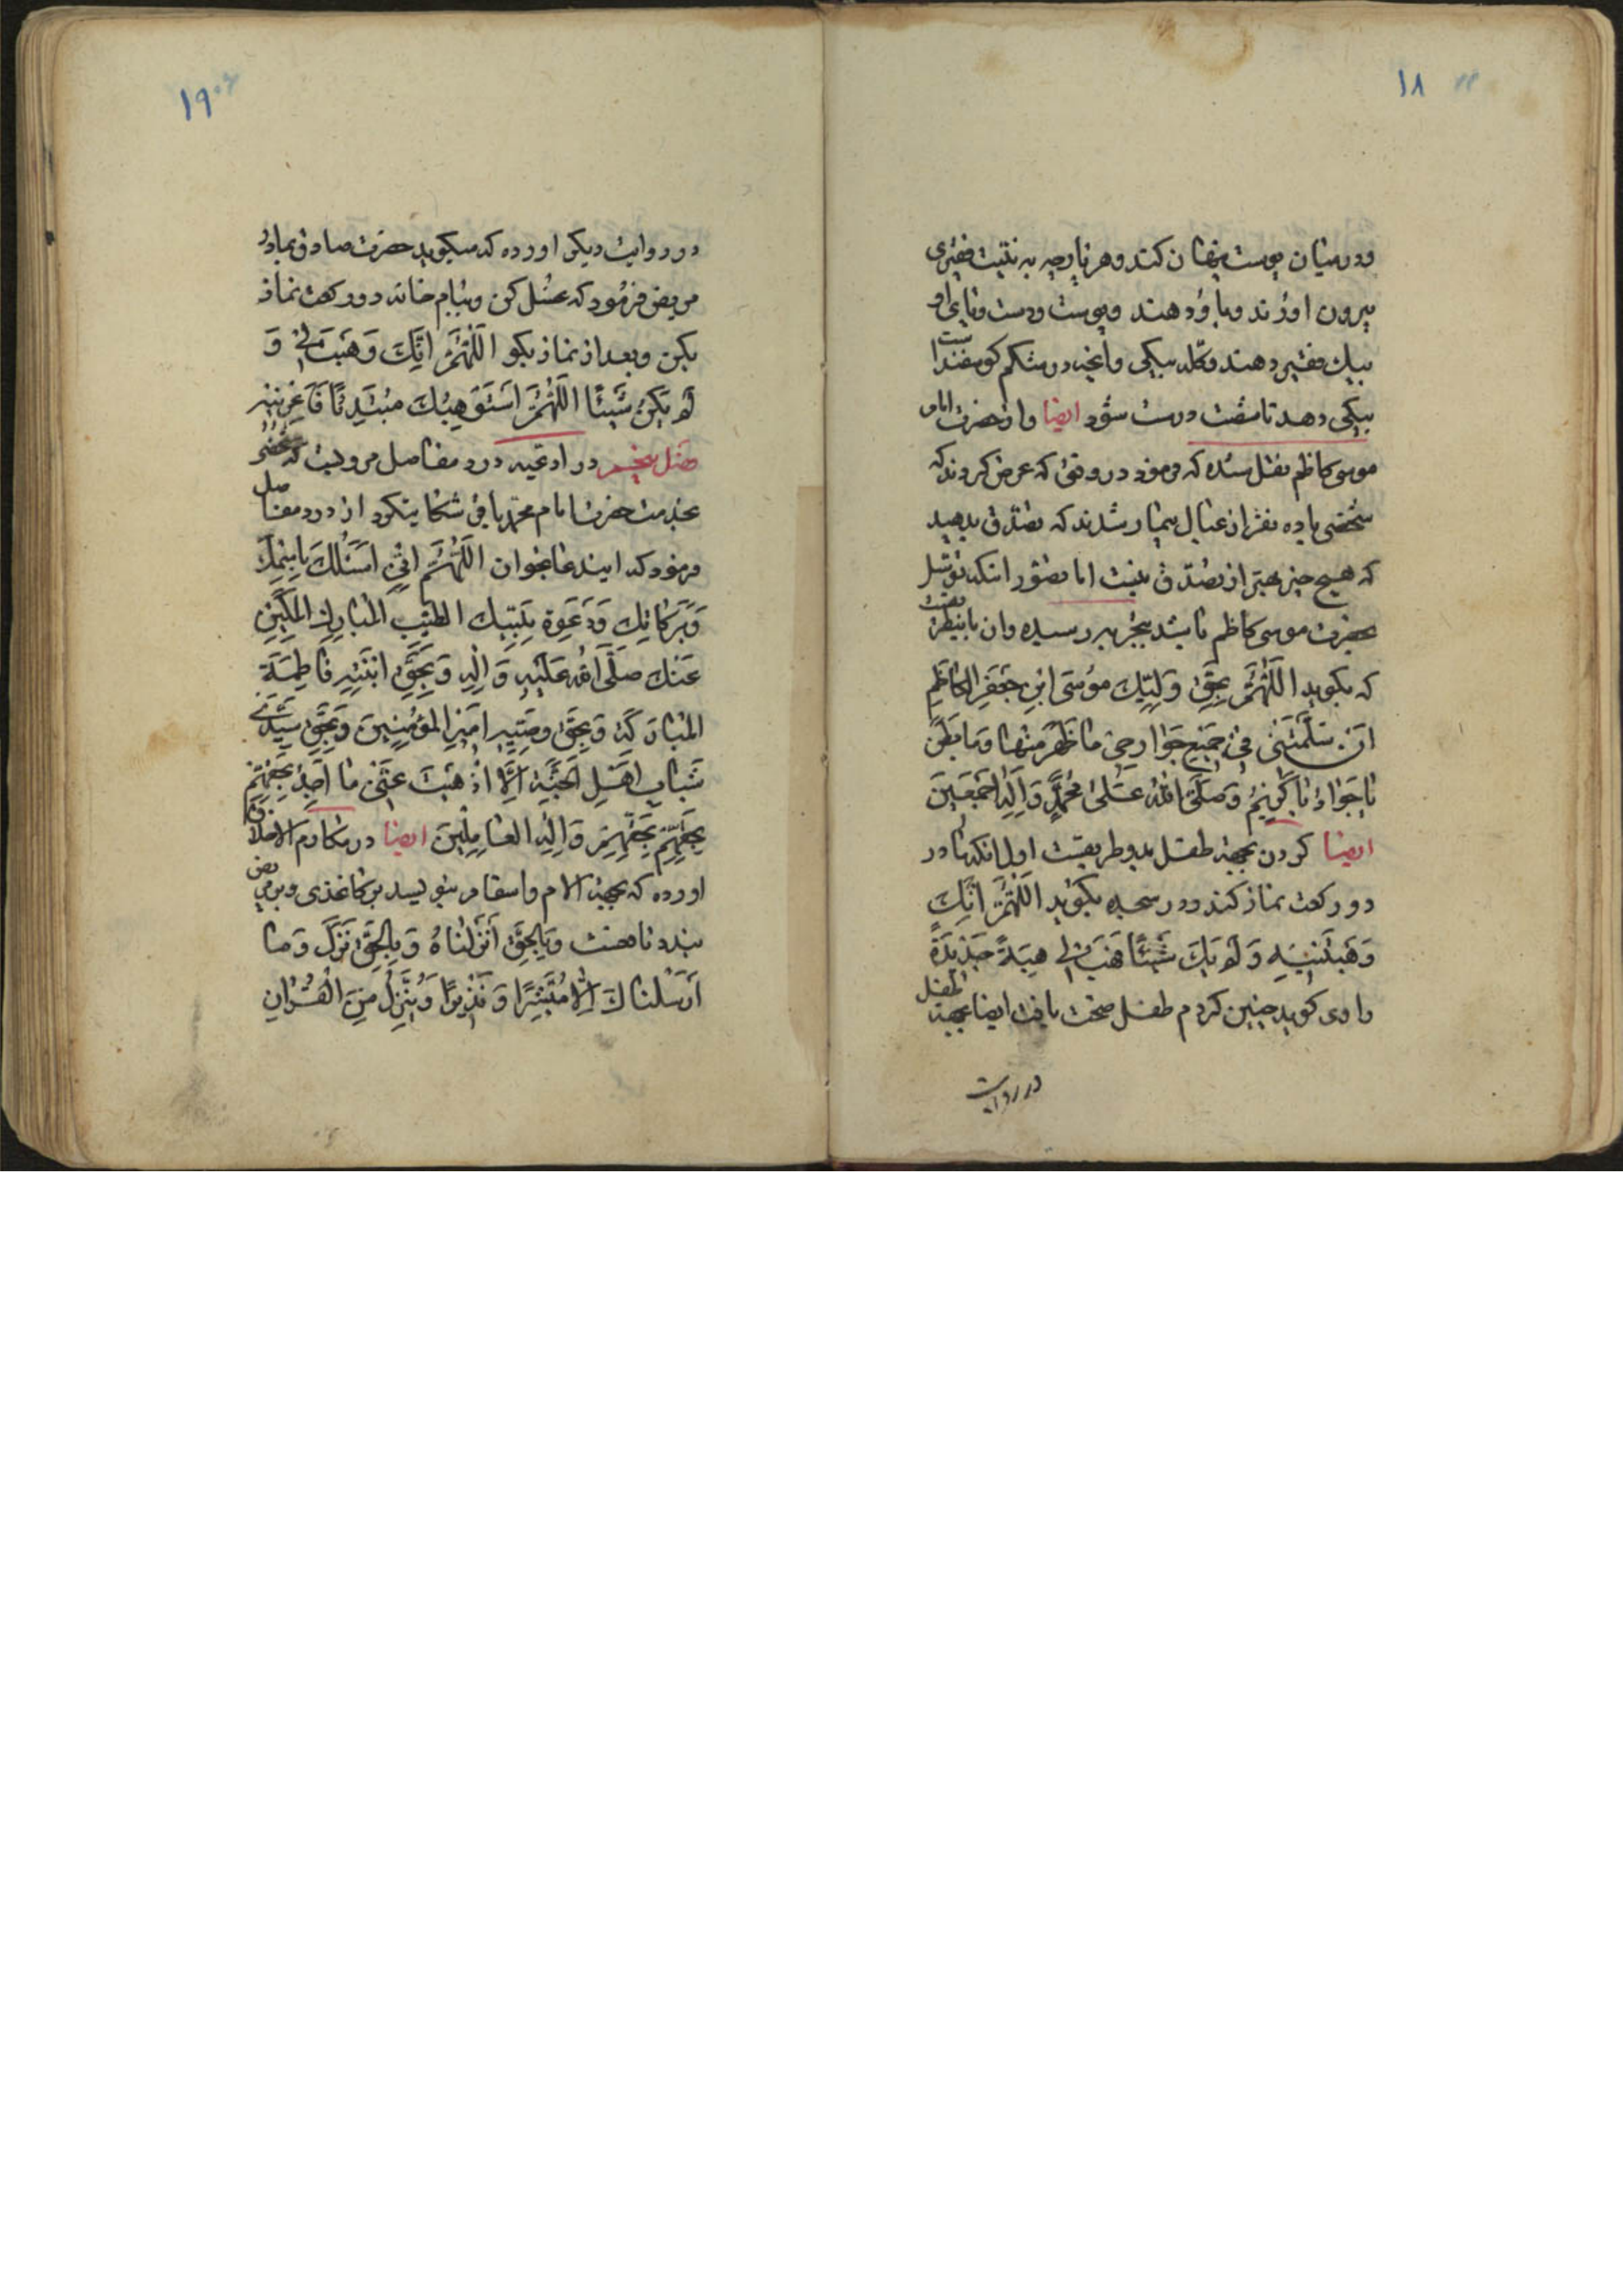 ۱۸
ودر میان پوست پنهان کند وهر پارچه به نیت فقیری
بیرون اورند وباو دهند وپوست ودست وپای او
بیک فقیر دهند وکله بیکی وانچه در شکم کوسفند است
بیکی دهد تا شفت درست شود ایضا واز حضرت امام
موسی کاظم نقل شده که فرمود در وقتی که عرض کردند که
شخصی با ده نفر از عیال بیمار شدند که تصدق بدهید
که هیچ چیز بهتر از تصدق نیست اما تصور انکه توسل
بحضرت موسی کاظم باشد بتجربه رسیده وان باینطریقست
که بکوید اَللّٰهُمَّ بِحَقِّ وَلِیِّكَ مُوسَی ابْنِ جَعْفَرِ الکاظِمِ
اَنْ سَلَّمْتَنی فی جَمیعِ جَوارِحی ما ظَهَرَ مِنْها وَما بَطَنَ
یا جَوادُ یا کَریمُ وَصَلَّی اللهُ عَلی مُحَمَّدٍ وَآلِهِ اَجْمَعینَ
ایضا کردن بجهة طفل بدو طریقست اول انکه مادر
دو رکعت نماز کند ودر سجده بکوید اَللّٰهُمَّ اِنَّكَ
وَهَبْتَنیهِ وَلَمْ یَكُ شَیْئًا فَهَبْهُ لی هِبَةً جَدیدَةً
راوی کوید چنین کردم طفل صحت یافت ایضا بجهة طفل
در روایت
۱۹
در روایت دیکر اورده که میکوید حضرت صادق بمادر
مریض فرمود که غسل کن وببام خانه دو رکعت نماز
بکن وبعد از نماز بکو اَللّٰهُمَّ اِنَّكَ وَهَبْتَهُ لی وَ
لَمْ یَکُنْ شَیْئًا اَللّٰهُمَّ اَسْتَوْهِبُكَ مُبْتَدِئًا فَاَعِرْنیهِ
فصل پنجم در ادعیه درد مفاصل مرویست که شخصی
بخدمت حضرت امام محمد باقر شکایت کرد از درد مفاصل
فرمود که ایندعا بخوان اَللّٰهُمَّ اِنّی اَسْئَلُكَ بِاسْمِكَ
وَبَرَکاتِكَ وَدَعْوَةِ نَبِیِّكَ الطَّیِّبِ الْمُبارَكِ الْمَکینِ
عِنْدَكَ صَلَّی اللهُ عَلَیْهِ وَآلِهِ وَبِحَقِّ ابْنَتِهِ فاطِمَةَ
الْمُبارَکَةِ وَبِحَقِّ وَصِیِّهِ اَمیرِ الْمُؤْمِنینَ وَبِحَقِّ سَیِّدَیْ
شَبابِ اَهْلِ الْجَنَّةِ اِلّا اَذْهَبْتَ عَنّی ما اَجِدُ بِحَقِّهِمْ
بِحَقِّهِمْ بِحَقِّهِمْ وَآلِهِ العامِلینَ ایضا در مکارم الاخلاق
اورده که بجهة آلام واسقام بنویسد بر کاغذی وبر مریض
بندد نافعست وَبِالْحَقِّ اَنْزَلْناهُ وَبِالْحَقِّ نَزَلَ وَما
اَرْسَلْناكَ اِلّا مُبَشِّرًا وَنَذیرًا وَنُنَزِّلُ مِنَ الْقُرْآنِ